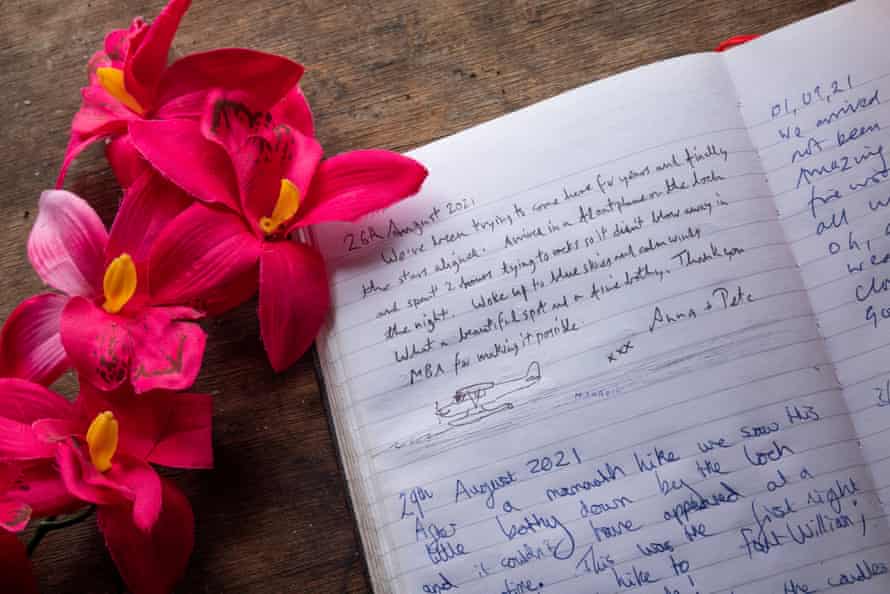 26th August 2021
We've been trying to come here for years and finally
the stars aligned. Arrived in a floatplane on the loch
and spent 2 hours trying to rocks so it didn't blow away in
the night. Woke up to blue skies and calm winds
What a beautiful spot and a fine bothy. Thank you
MBA for making it possible
Anna + Pete
xxx
29th August 2021
After a mammoth hike we saw this
little bothy down by the loch
and it couldn't have appeared at a
time. This was the first night
hike to Fort William,
the candles
01,09,21
we arrived
not been
Amazing
fire wo
all w
Oh, 
we
clo
Go
31